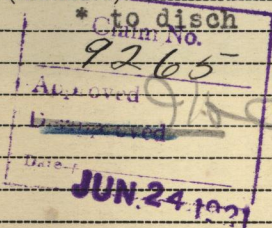 * to disch
Claim No.
9265
Approved
Disapproved
Date
JUN. 24 1921